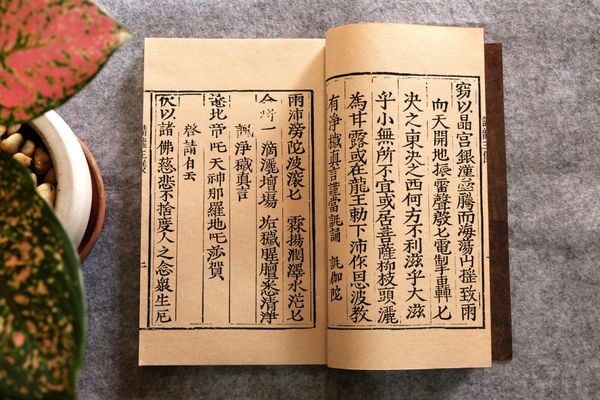 竊以晶宮銀漢騰而海蕩山摧致雨
向天開地振雷聲嚴匕電掣車轟匕
決之東決之西何方不利滋乎大滋
乎小無所不宜或在居菩薩柳枝頭灑
為甘露或在龍王勅下沛作恩波教
有淨穢真言謹當誦 伽陀
雨沛滂陀波滚匕 霖揚潤澤水茫匕
今將一滴灑壇場 穢腥膻悉清淨
諷淨穢真言
唵北帝吒天神那羅地吒莎賀
啓請白云
伏以諸佛慈悲不捨度人之念眾生厄